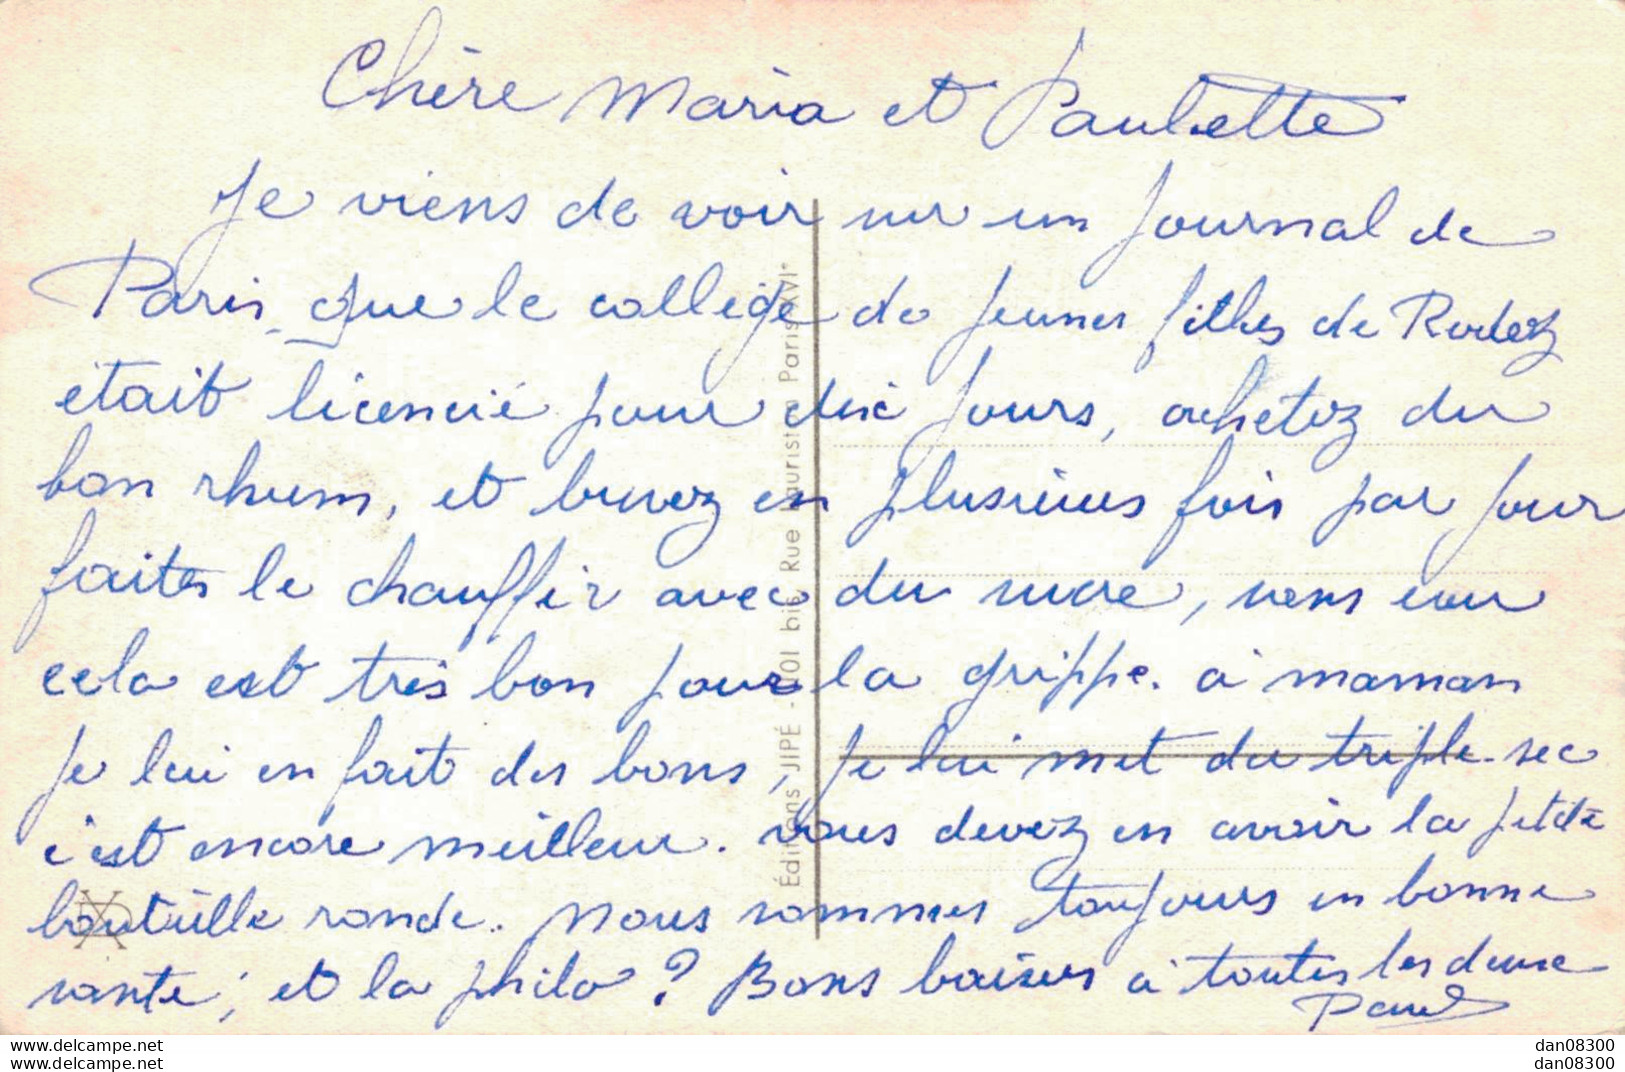 Chère Maria et Paulette
Je viens de voir sur un journal de
Paris, que le collège de jeunes filles de Rodez
était licencié pour dix jours, achetez du
bon rhum, et buvez en plusieurs fois par jour
faites le chauffer avec du sucre, sans eau
cela est très bon pour la grippe. à maman
je lui en fait des bons, je lui met du triple-sec
c'est encore meilleur. vous devez en avoir la petite
bouteille ronde. Nous sommes toujours en bonne
santé; et la philo? Bons baisers à toutes les deux
Paul
Éditions JIPÉ - 101 bis, Rue Lauriston Paris XVI°
dan08300
dan08300
www.delcampe.net
www.delcampe.net